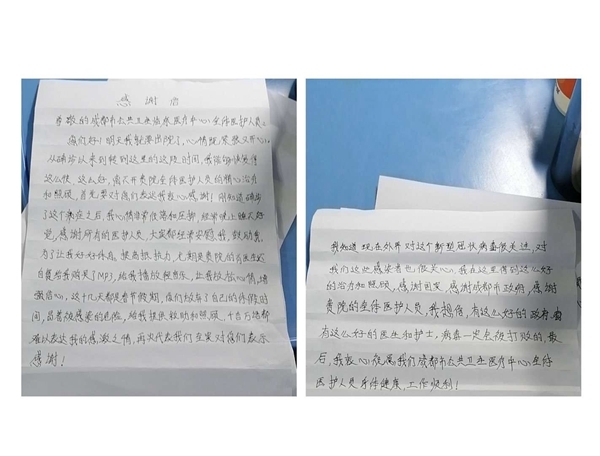 感谢信
尊敬的成都市公共卫生临床医疗中心全体医护人员:
你们好!明天我就要出院了,心情既紧张又开心。
从确诊以来到转到这里的这段时间,我能够恢复得
这么快,这么好,离不开贵院全体医护人员的精心治疗
和照顾,首先要对你们表达我衷心感谢!刚知道确诊
了这个病症之后,我心情非常低落和压抑,经常晚上睡不好
觉,感谢所有的医护人员,大家都经常安慰我,鼓励我。
为了让我好好休息,提高抵抗力,
自费给我购买了MP3,给我播放轻音乐,让我放松心情,增
强信心,这十几天都是春节假期,你们放弃了自己的休假时
间,冒着被感染的危险,给我提供救助和照顾,千言万语都
难以表达我的感激之情,再次代表我们全家对你们表示
感谢!
我知道现在外界对这个新型冠状病毒很关注,对
我们这些感染者也很关心,我在这里得到这么好
的治疗和照顾,感谢国家,感谢成都市政府,感谢
贵院的全体医护人员,我相信,有这么好的政府,
有这么好的医生和护士,病毒一定会被打败的,最
后,我衷心祝愿我们成都市公共卫生医疗中心全体
医护人员身体健康,工作顺利!